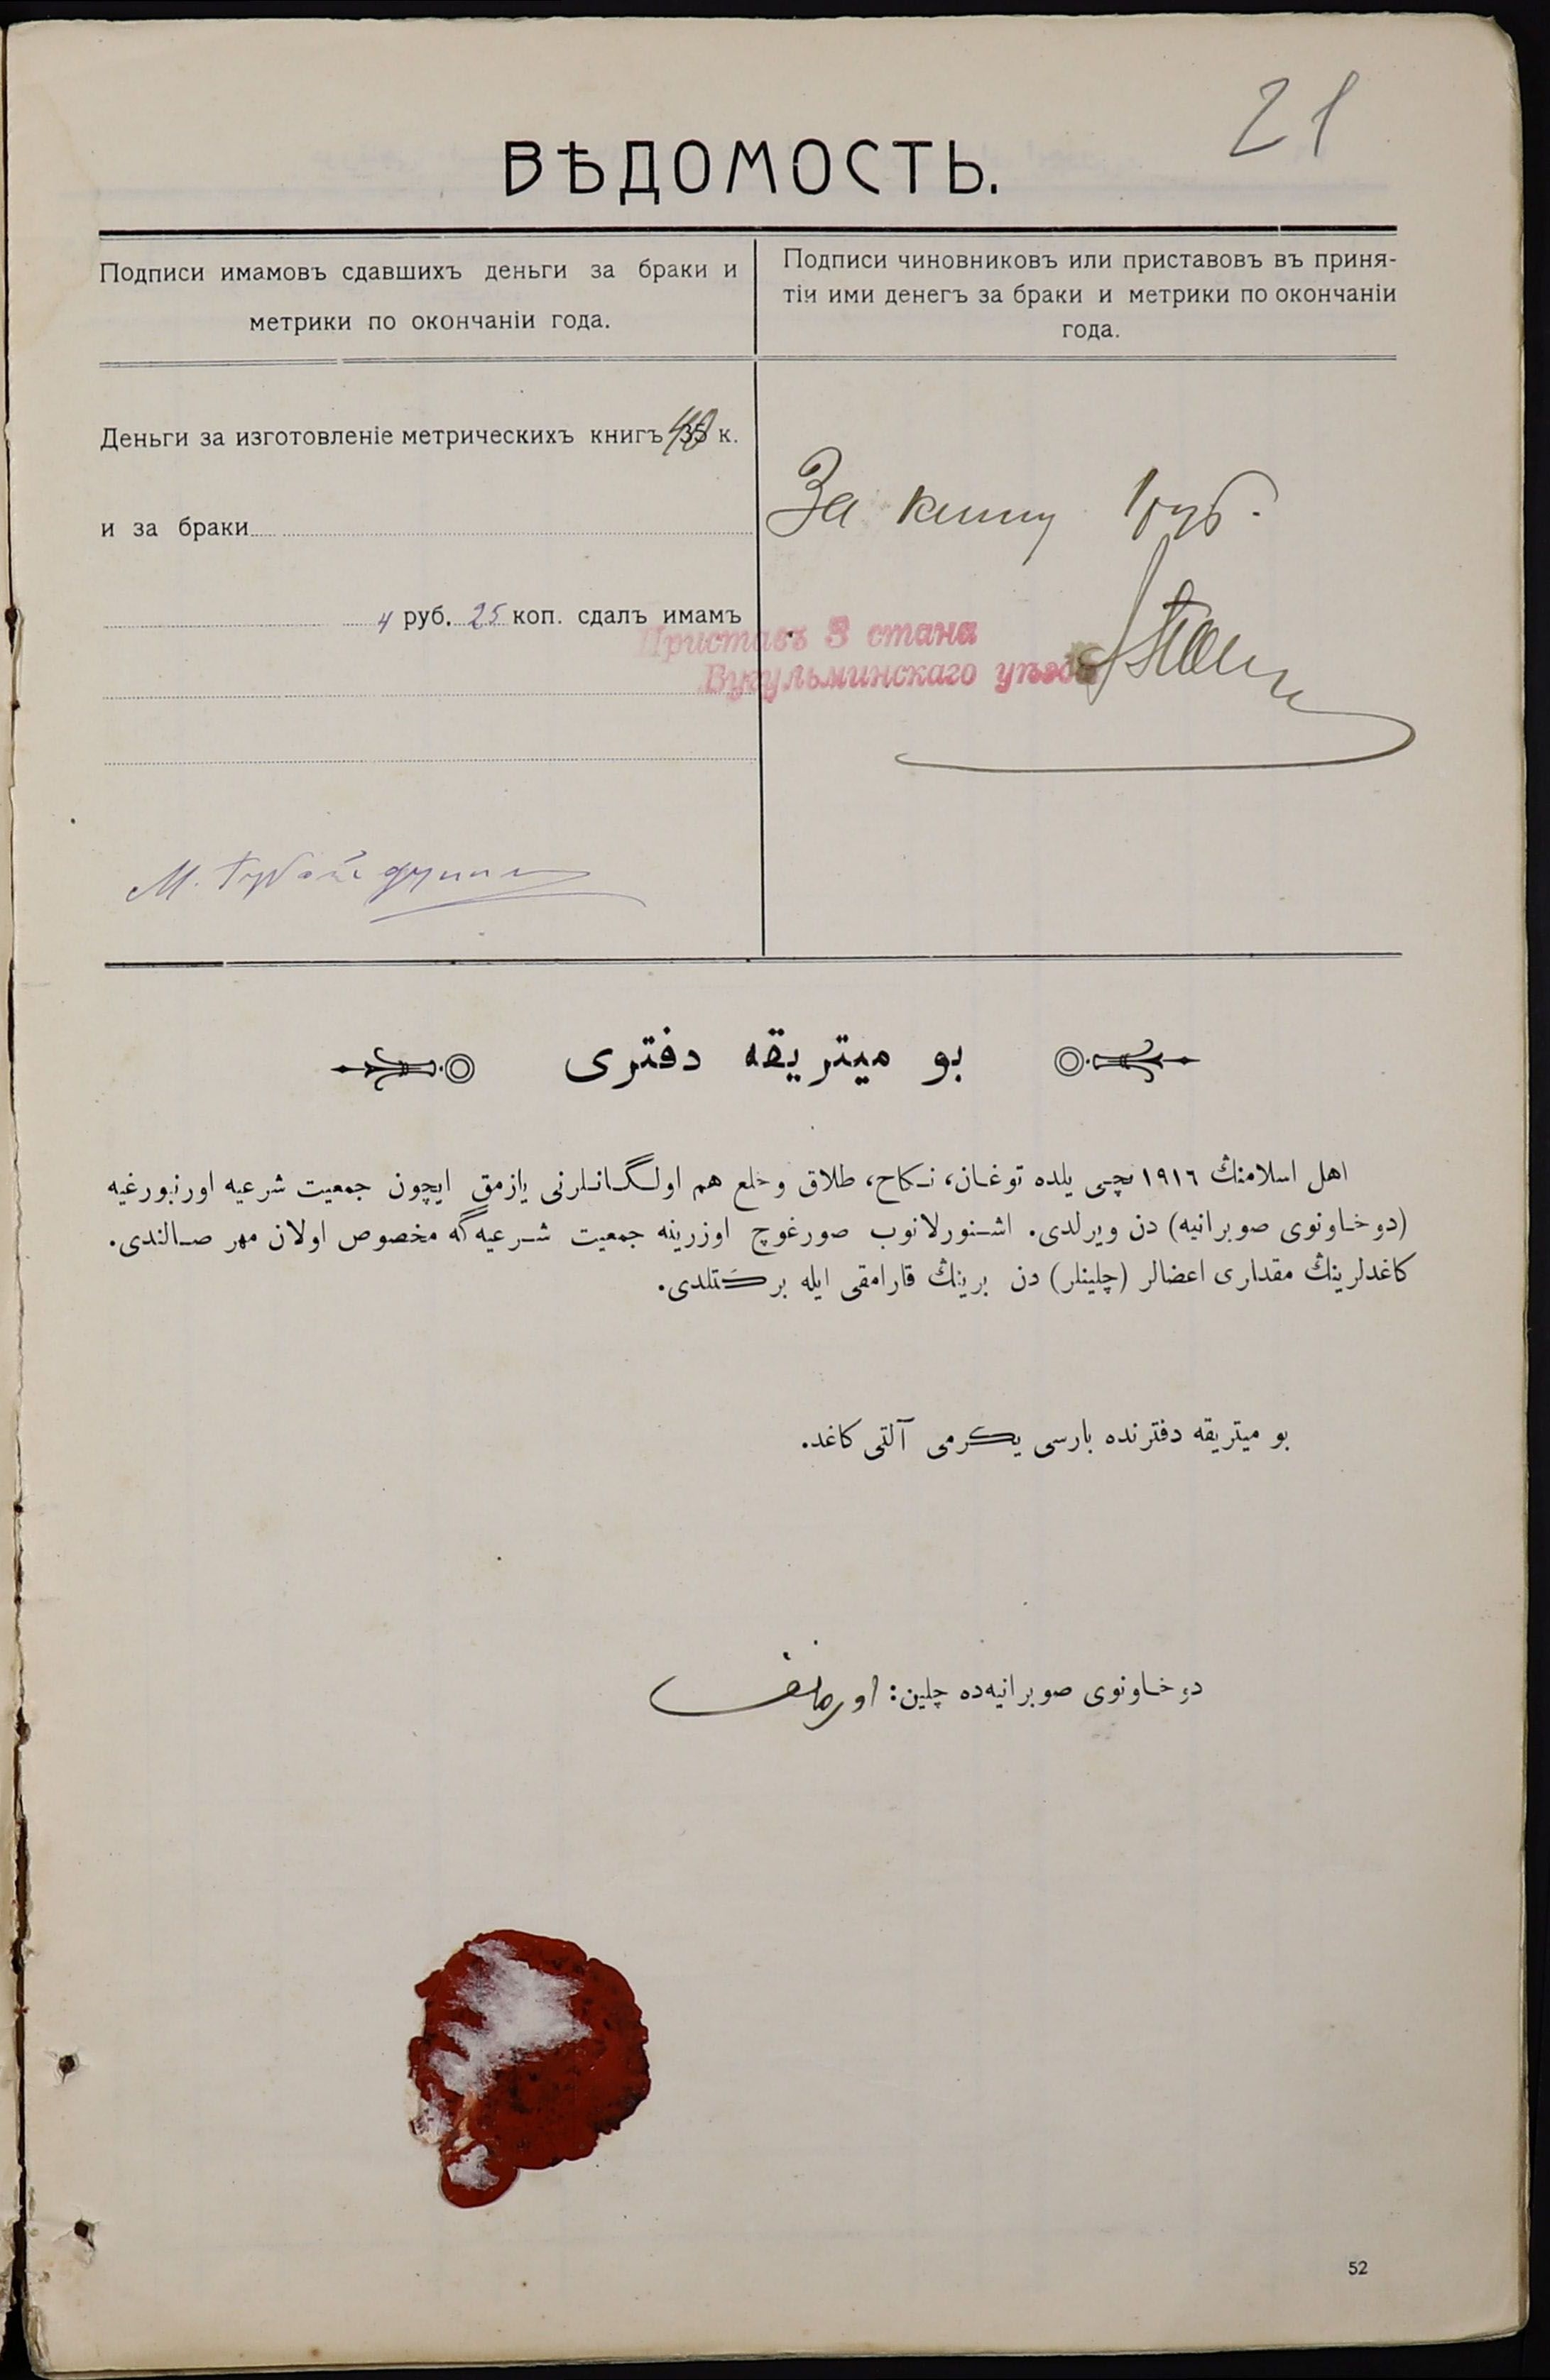 21
ВѢДОМОСТЬ.
Подписи имамовъ сдавшихъ деньги за браки и
метрики по окончаніи года.
Подписи чиновниковъ или приставовъ въ приня-
тіи ими денегъ за браки и метрики по окончаніи
года.
Деньги за изготовленіе метрическихъ книгъ 35 к.
и за браки
4 руб. 25 коп. сдалъ имамъ
За книгу 1 руб.
Приставъ 3 стана
Бугульминскаго уѣзда
М. Губайдуллин
بو ميتريقه دفترى
اهل اسلامنڭ ١٩١٦ نچى يلده توغان، نكاح، طلاق وخلع هم اولگانلرنى يازمق ايچون جمعيت شرعيه اورنبورغيه
(دوخاونوى صوبرانيه) دن ويرلدى. اشنورلانوب صورغوچ اوزرينه جمعيت شرعيه‌گه مخصوص اولان مهر صالندى.
كاغدلرينڭ مقدارى اعضالر (چلينلر) دن برينڭ قارامقى ايله بركتلدى.
بو ميتريقه دفترنده بارسى يكرمى آلتى كاغد.
دوخاونوى صوبرانيه‌ده چلين:
52